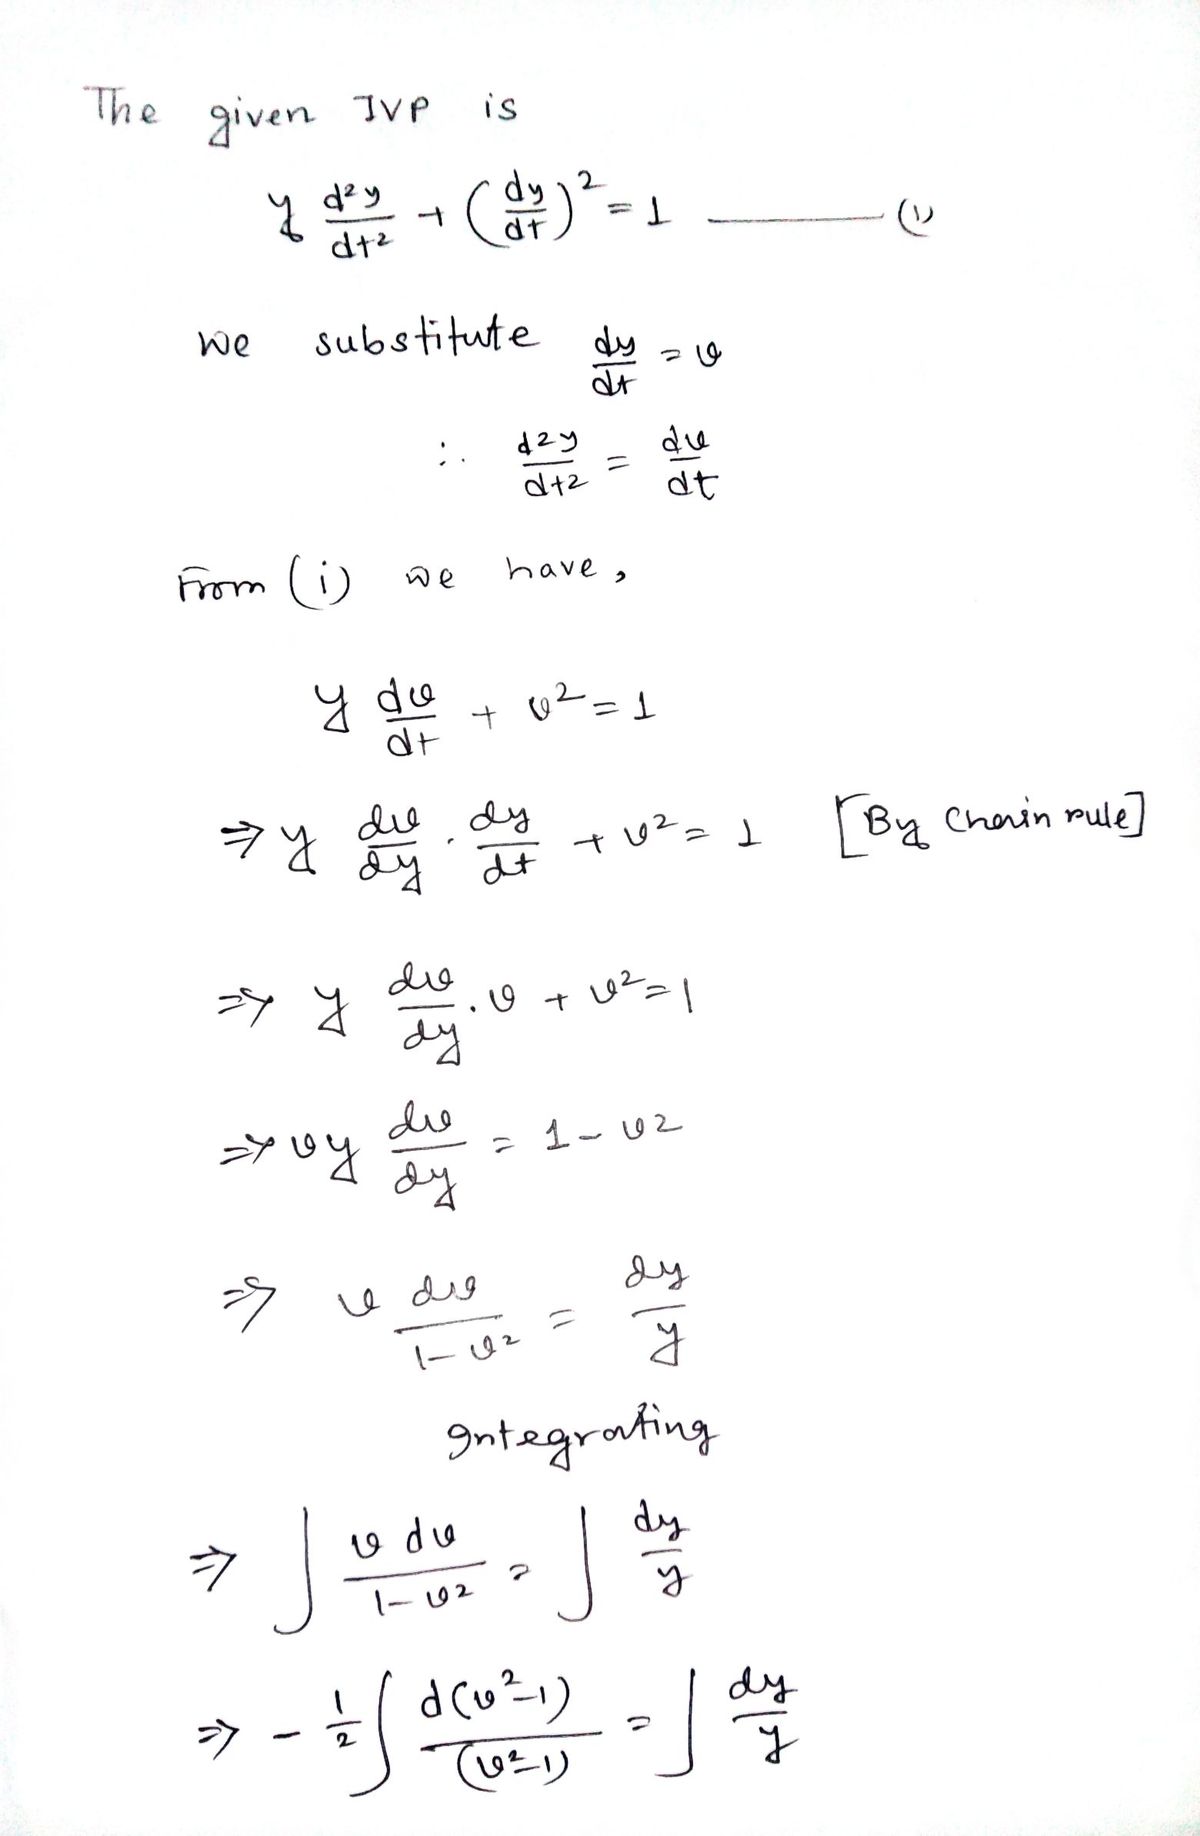 The given IVP is
y d²y/dt² + (dy/dt)² = 1 ——— (i)
we substitute dy/dt = v
∴ d²y/dt² = dv/dt
From (i) we have,
y dv/dt + v² = 1
⇒ y dv/dy . dy/dt + v² = 1 [By Chain rule]
⇒ y dv/dy . v + v² = 1
⇒ vy dv/dy = 1 - v²
⇒ v dv/1-v² = dy/y
Integrating
⇒ ∫ v dv/1-v² = ∫ dy/y
⇒ -1/2 ∫ d(v²-1)/(v²-1) = ∫ dy/y